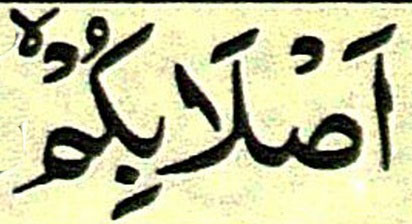 اَصْلَابِكُمْ ۙ